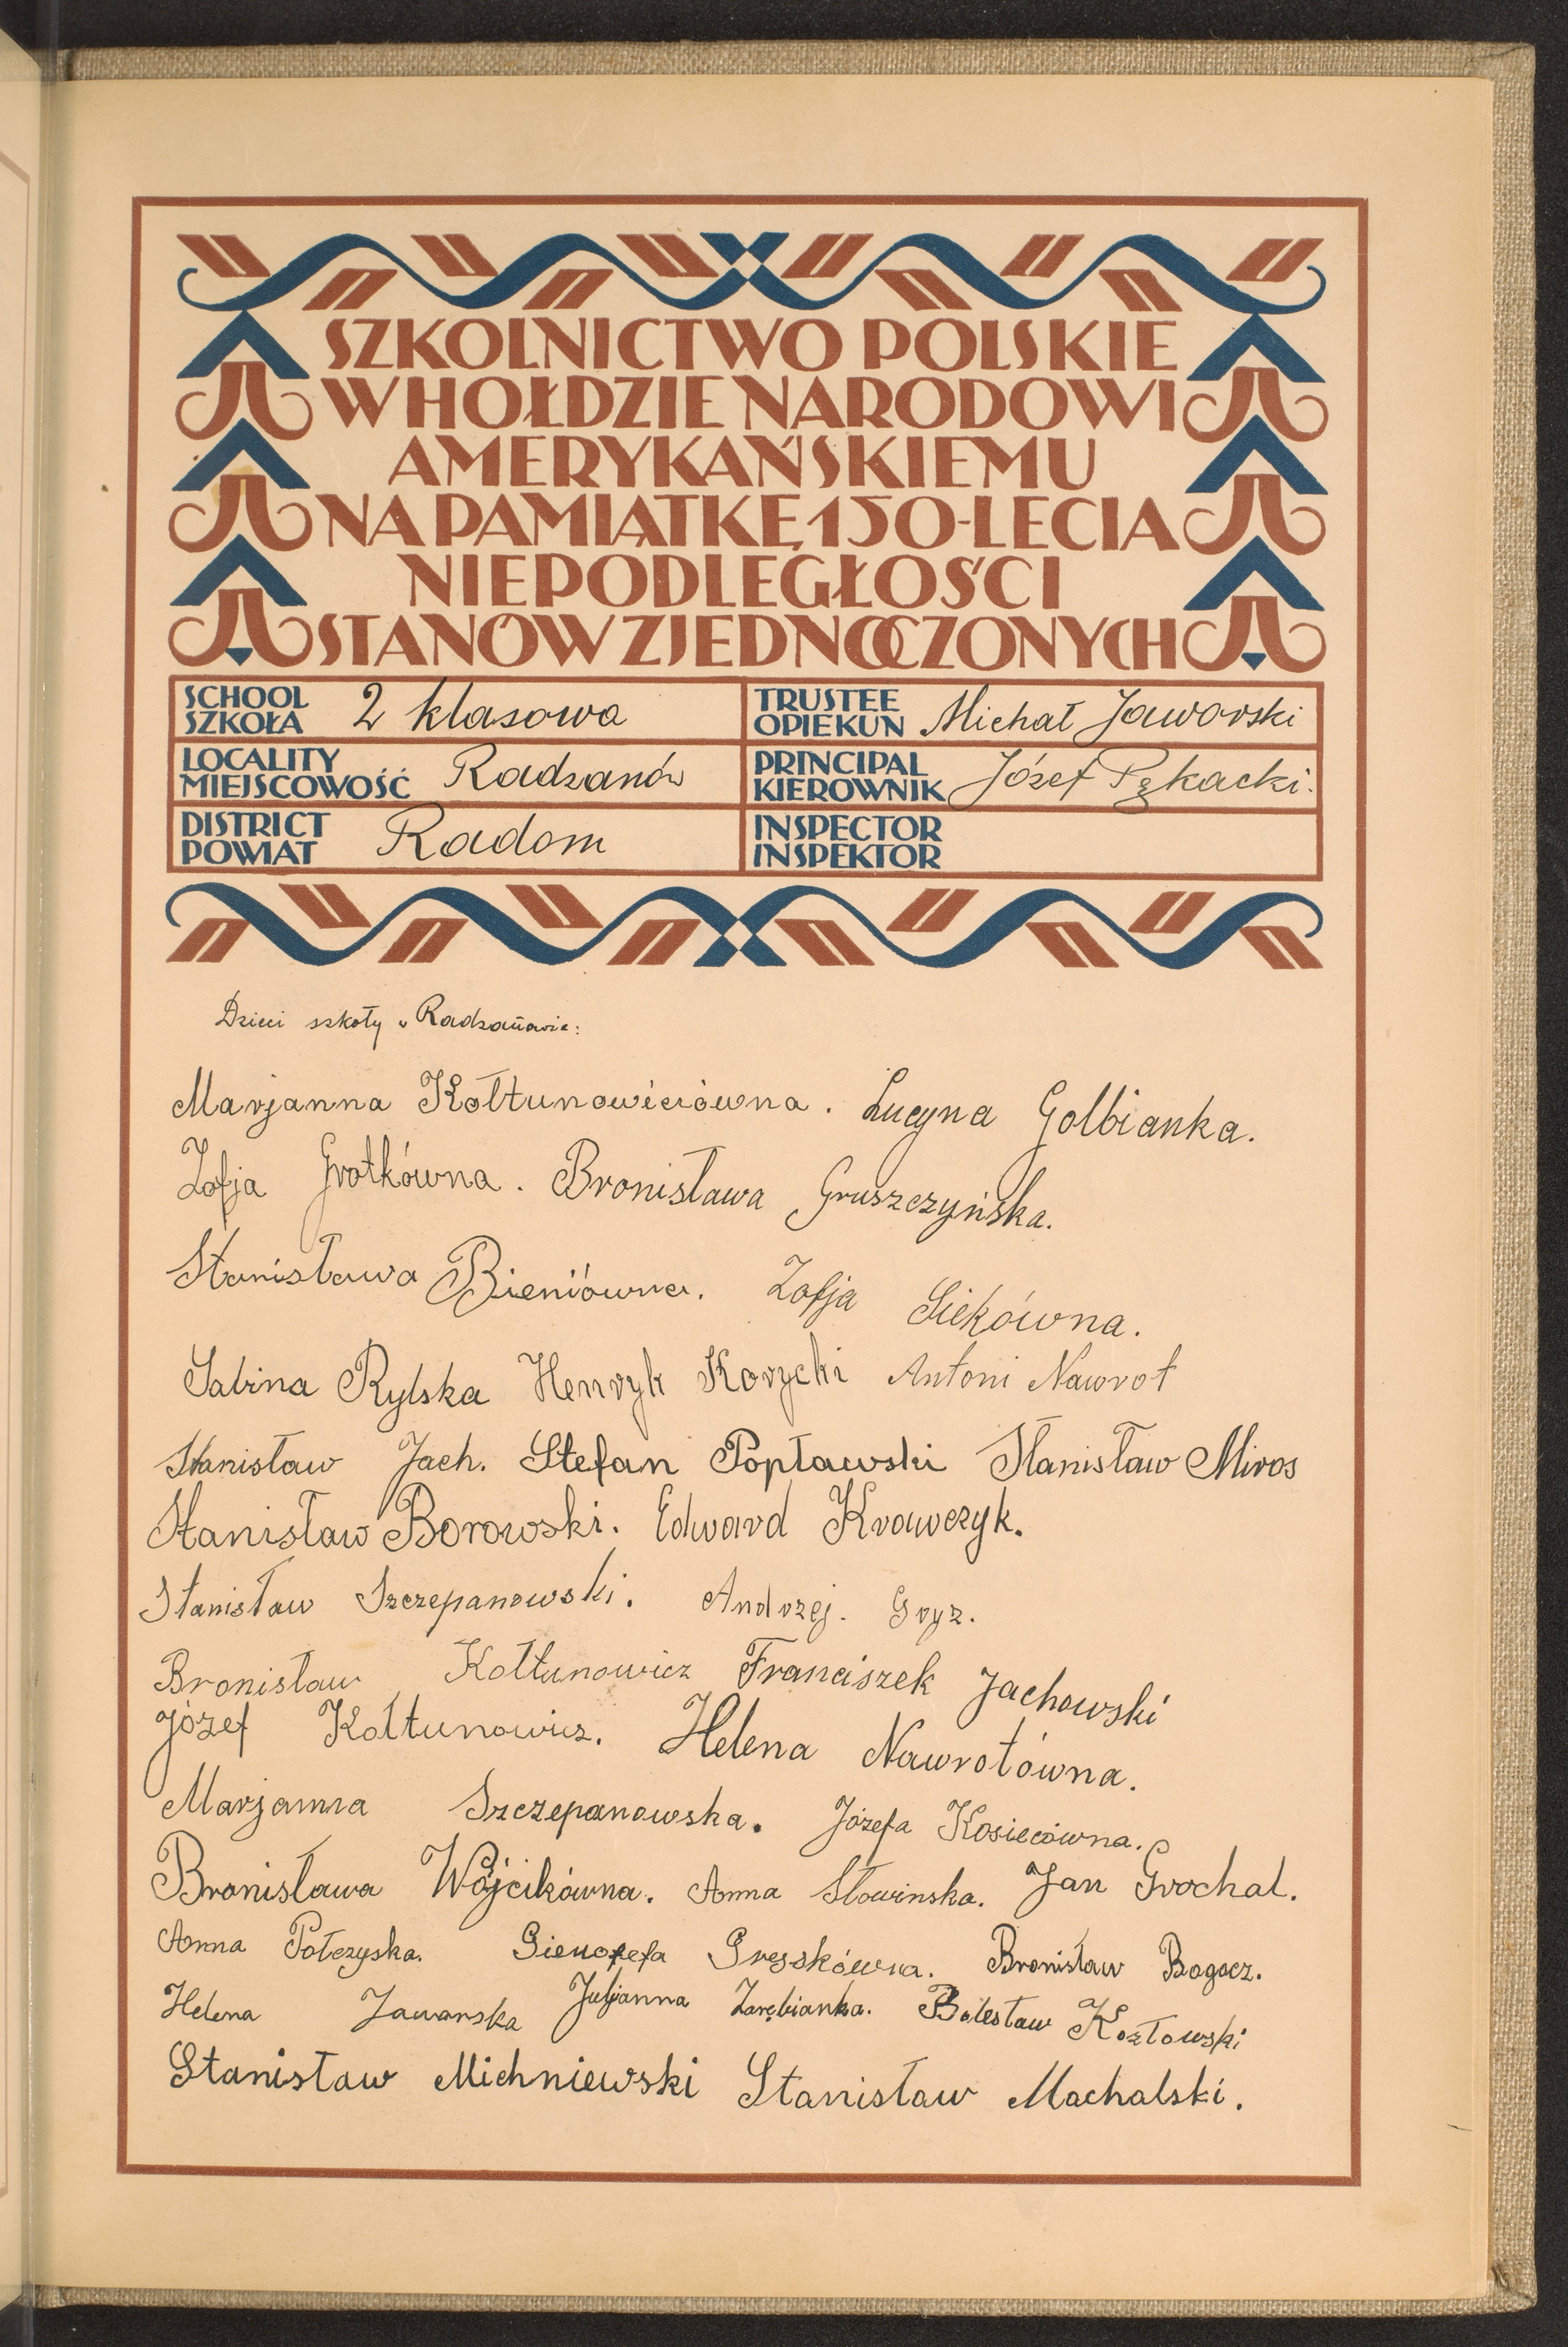 SZKOLNICTWO POLSKIE
W HOŁDZIE NARODOWI
AMERYKAŃSKIEMU
NA PAMIĄTKĘ 150-LECIA
NIEPODLEGŁOŚCI
STANÓW ZJEDNOCZONYCH
SCHOOL
SZKOŁA 2 klasowa
TRUSTEE
OPIEKUN Michał Jaworski
LOCALITY
MIEJSCOWOŚĆ Radzanów
PRINCIPAL
KIEROWNIK Józef Pękacki.
DISTRICT
POWIAT Radom
INSPECTOR
INSPEKTOR
Dzieci szkoły w Radzanowie:
Marjanna Kołtunowiciówna. Lucyna Golbianka.
Zofja Grotkówna. Bronisława Gruszczyńska.
Stanisława Bieniówna. Zofja Siekówna.
Sabina Rylska Henryk Korycki Antoni Nawrot
Stanisław Jach. Stefan Popławski Stanisław Miros
Stanisław Borowski. Edward Krawczyk.
Stanisław Szczepanowski. Andrzej. Gryz.
Bronisław Kołtunowicz Franciszek Jachowski
Józef Kołtunowicz. Helena Nawrotówna.
Marjanna Szczepanowska. Józefa Kosiecówna.
Bronisława Wójcikówna. Anna Słowinska. Jan Grochal.
Anna Połczyska. Gienofefa Gresskówna. Bronisław Bogacz.
Helena Jawarska Juljanna Zarębianka. Bolesław Kozłowski
Stanisław Michniewski Stanisław Machalski.